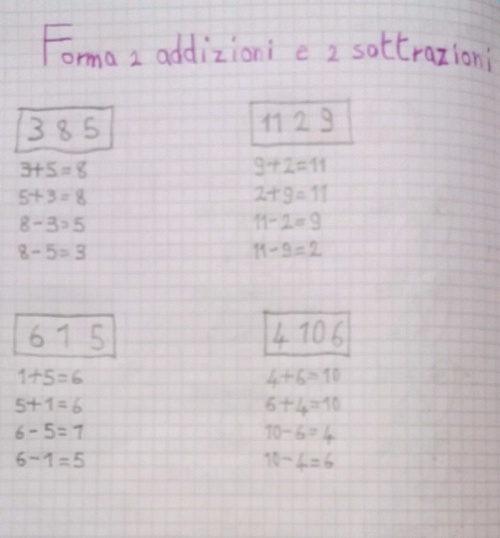 Forma 2 addizioni e 2 sottrazioni
3 8 5
3+5=8
5+3=8
8-3=5
8-5=3
11 2 9
9+2=11
2+9=11
11-2=9
11-9=2
6 1 5
1+5=6
5+1=6
6-5=1
6-1=5
4 10 6
4+6=10
6+4=10
10-6=4
10-4=6